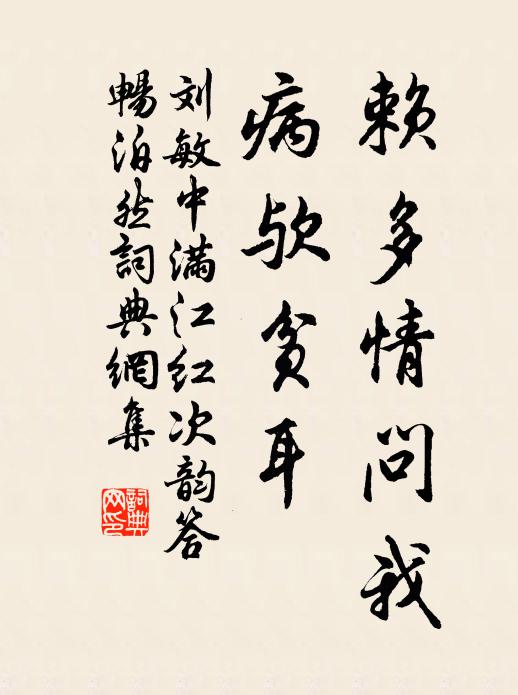 赖多情问我
病欤贫耳
刘敏中满江红次韵答
畅泊然詞典網集
詞典
网印